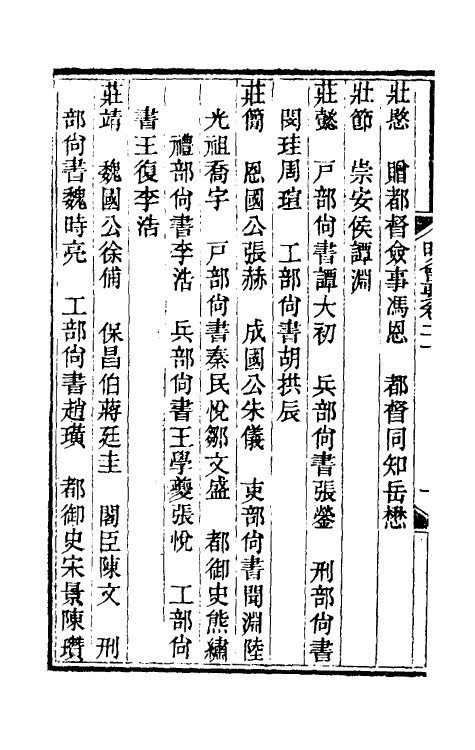 壯愍　贈都督僉事馮恩　都督同知岳懋
壯節　崇安侯譚淵
莊懿　戶部尙書譚大初　兵部尙書張鎣　刑部尙書
閔珪周瑄　工部尙書胡拱辰
莊簡　恩國公張赫　成國公朱儀　吏部尙書聞淵陸
光祖喬宇　戶部尙書秦民悅鄒文盛　都御史熊繡
禮部尙書李浩　兵部尙書王學夔張悅　工部尙
書王復李浩
莊靖　魏國公徐俌　保昌伯蔣廷圭　閣臣陳文　刑
部尙書魏時亮　工部尙書趙璜　都御史宋景陳瓚
明會要卷二